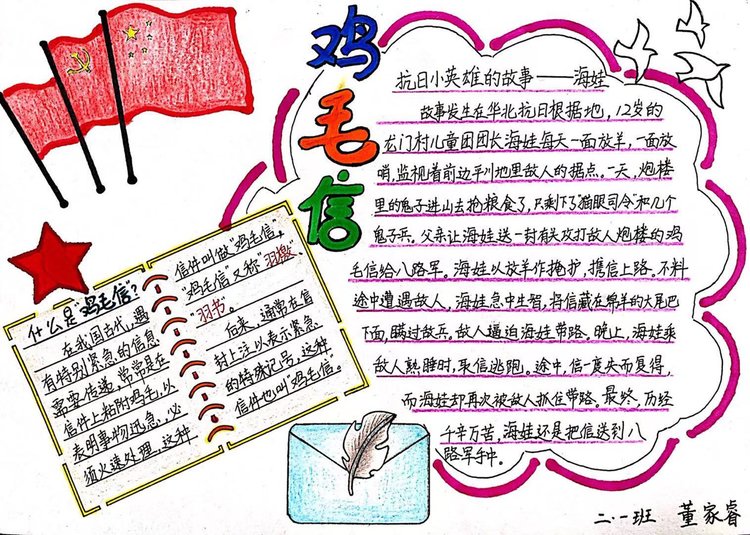 鸡毛信
抗日小英雄的故事——海娃
故事发生在华北抗日根据地,12岁的
龙门村儿童团团长海娃每天一面放羊,一面放
哨,监视着前边平川地里敌人的据点。一天,炮楼
里的鬼子进山去抢粮食了,只剩下了"猫眼司令"和几个
鬼子兵。父亲让海娃送一封有关攻打敌人炮楼的鸡
毛信给八路军。海娃以放羊作掩护,携信上路。不料
途中遭遇敌人,海娃急中生智,将信藏在绵羊的大尾巴
下面,瞒过敌兵。敌人逼迫海娃带路。晚上,海娃乘
敌人熟睡时,取信逃跑。途中,信一度失而复得,
而海娃却再次被敌人抓住带路。最终,历经
千辛万苦,海娃还是把信送到八
路军手中。
什么是"鸡毛信?
在我国古代,遇
有特别紧急的信息
需要传递,常常是在
信件上粘附鸡毛,以
表明事物迅急,必
须火速处理,这种
信件叫做"鸡毛信。
"鸡毛信又称"羽檄、
"羽书。
后来,通常在信
封上注以表示紧急
的特殊记号,这种
信件也叫"鸡毛信"。
二.一班 董家睿